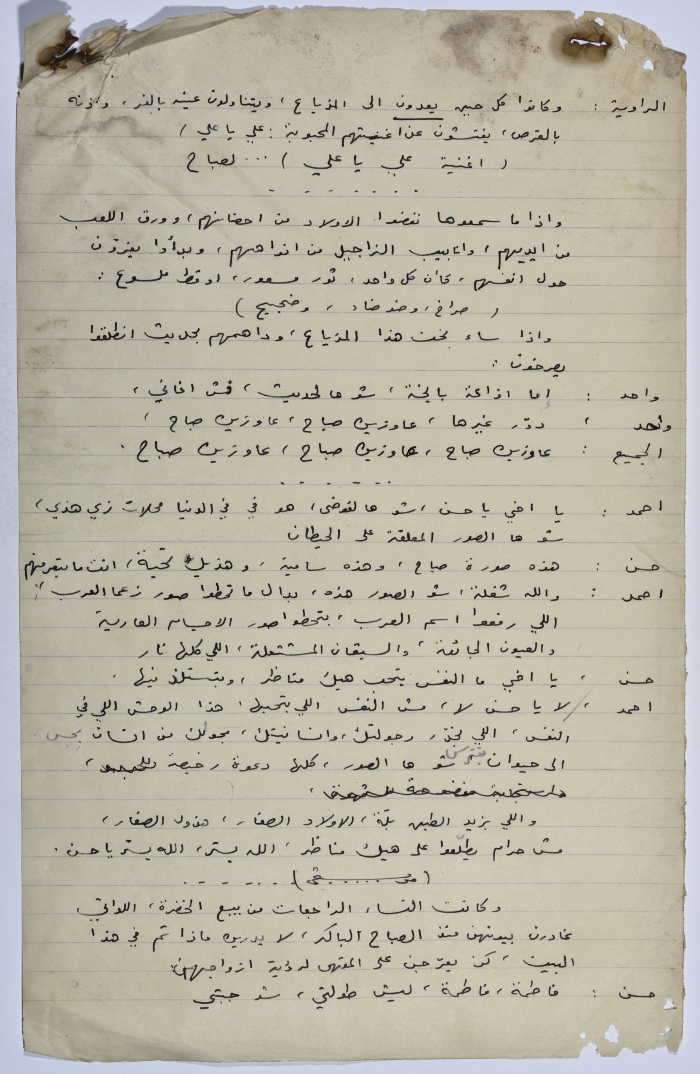 الراوية : وكانوا كل حين يعدون الى المذياع ، ويتناولون عينه بالنقر ، واذنه
بالقرص ، يفتشون عن اغنيتهم المحبوبة : علي يا علي )
( اغنية علي يا علي ) ... لصباح
واذا ما سمعوها نفضوا الاولاد من احضانهم ، وورق اللعب
من ايديهم ، وانابيب النراجيل من افواههم ، وبدأوا يفزون
حول انفسهم ، كأن كل واحد ، ثور مسعور ، او قط ملسوع :
( صراخ ، وضوضاء ، وضجيج )
واذا ساء بخت هذا المذياع ، وداهمهم بحديث انطلقوا
يصرخون :
واحد : اما اذاعة بايخة ، شو هالحديث ، فش اغاني ،
واحد : دوّر غيرها ، عاوزين صباح ، عاوزين صباح ،
الجميع : عاوزين صباح ، عاوزين صباح ، عاوزين صباح .
احمد : يا اخي يا حسن ، شو هالفوضى ، هو في في الدنيا محلات زي هذي ،
شو ها الصور المعلقة على الحيطان
حسن : هذه صورة صباح ، وهذه سامية ، وهذيك تحية ، انت ما بتعرفهم
احمد : والله شغلة ، شو الصور هذه ، بدال ما تحطوا صور زعما العرب ،
اللي رفعوا اسم العرب ، بتحطوا صور الاجسام العارية
والعيون الجائعة ، والسيقان المشتعلة ، اللي كلها نار
حسن : يا اخي ما النفس بتحب هيك مناظر ، وبتستلذ فيها .
احمد : لا يا حسن لا ، مش النفس اللي بتحبها ، هذا الوحش اللي في
النفس ، اللي بخدّر رجولتك ، وانسانيتك ، بحولك من انسان بحس
الى حيوان بفترس شو ها الصور ، كلها دعوة رخيصة
واللي بزيد الطين بلّة ، الاولاد الصغار ، هدول الصغار ،
مش حرام يطلّعوا على هيك مناظر ، الله يستر ، الله يستر يا حسن .
وكانت النساء الراجعات من بيع الخضرة ، اللواتي
غادرن بيوتهن منذ الصباح الباكر ، لا يدرين ماذا تم في هذا
البيت ، كن يعرّجن على المقهى لرؤية ازواجهن :
حسن : فاطمة ، فاطمة ، ليش طولتي ، شو جبتي